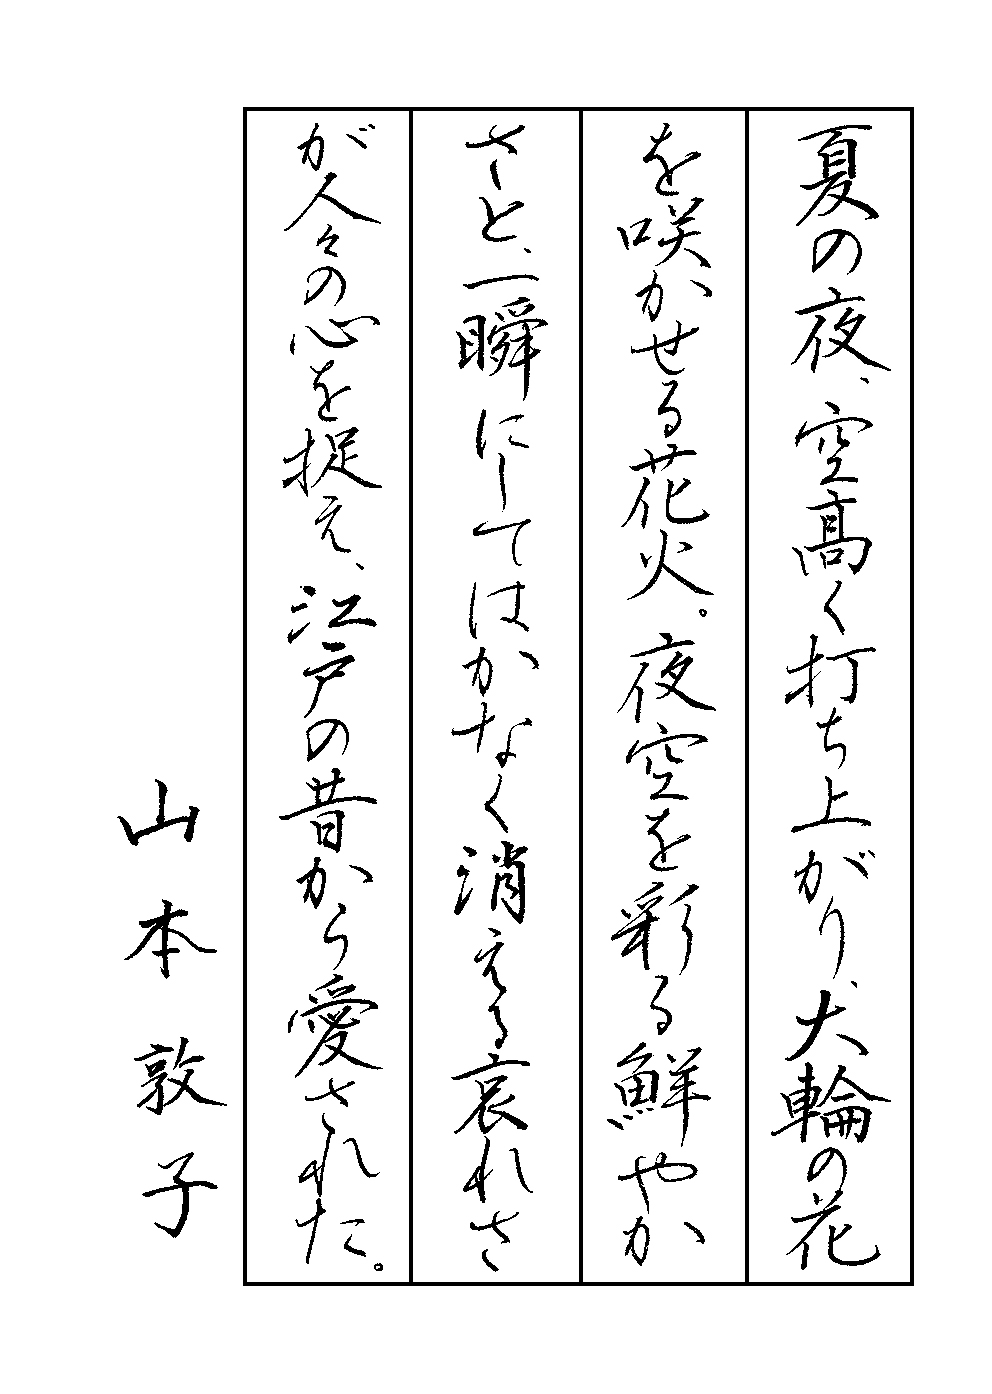 夏の夜、空高く打ち上がり、大輪の花
を咲かせる花火。夜空を彩る鮮やか
さと、一瞬にしてはかなく消える哀れさ
が人々の心を捉え、江戸の昔から愛された。
山本敦子